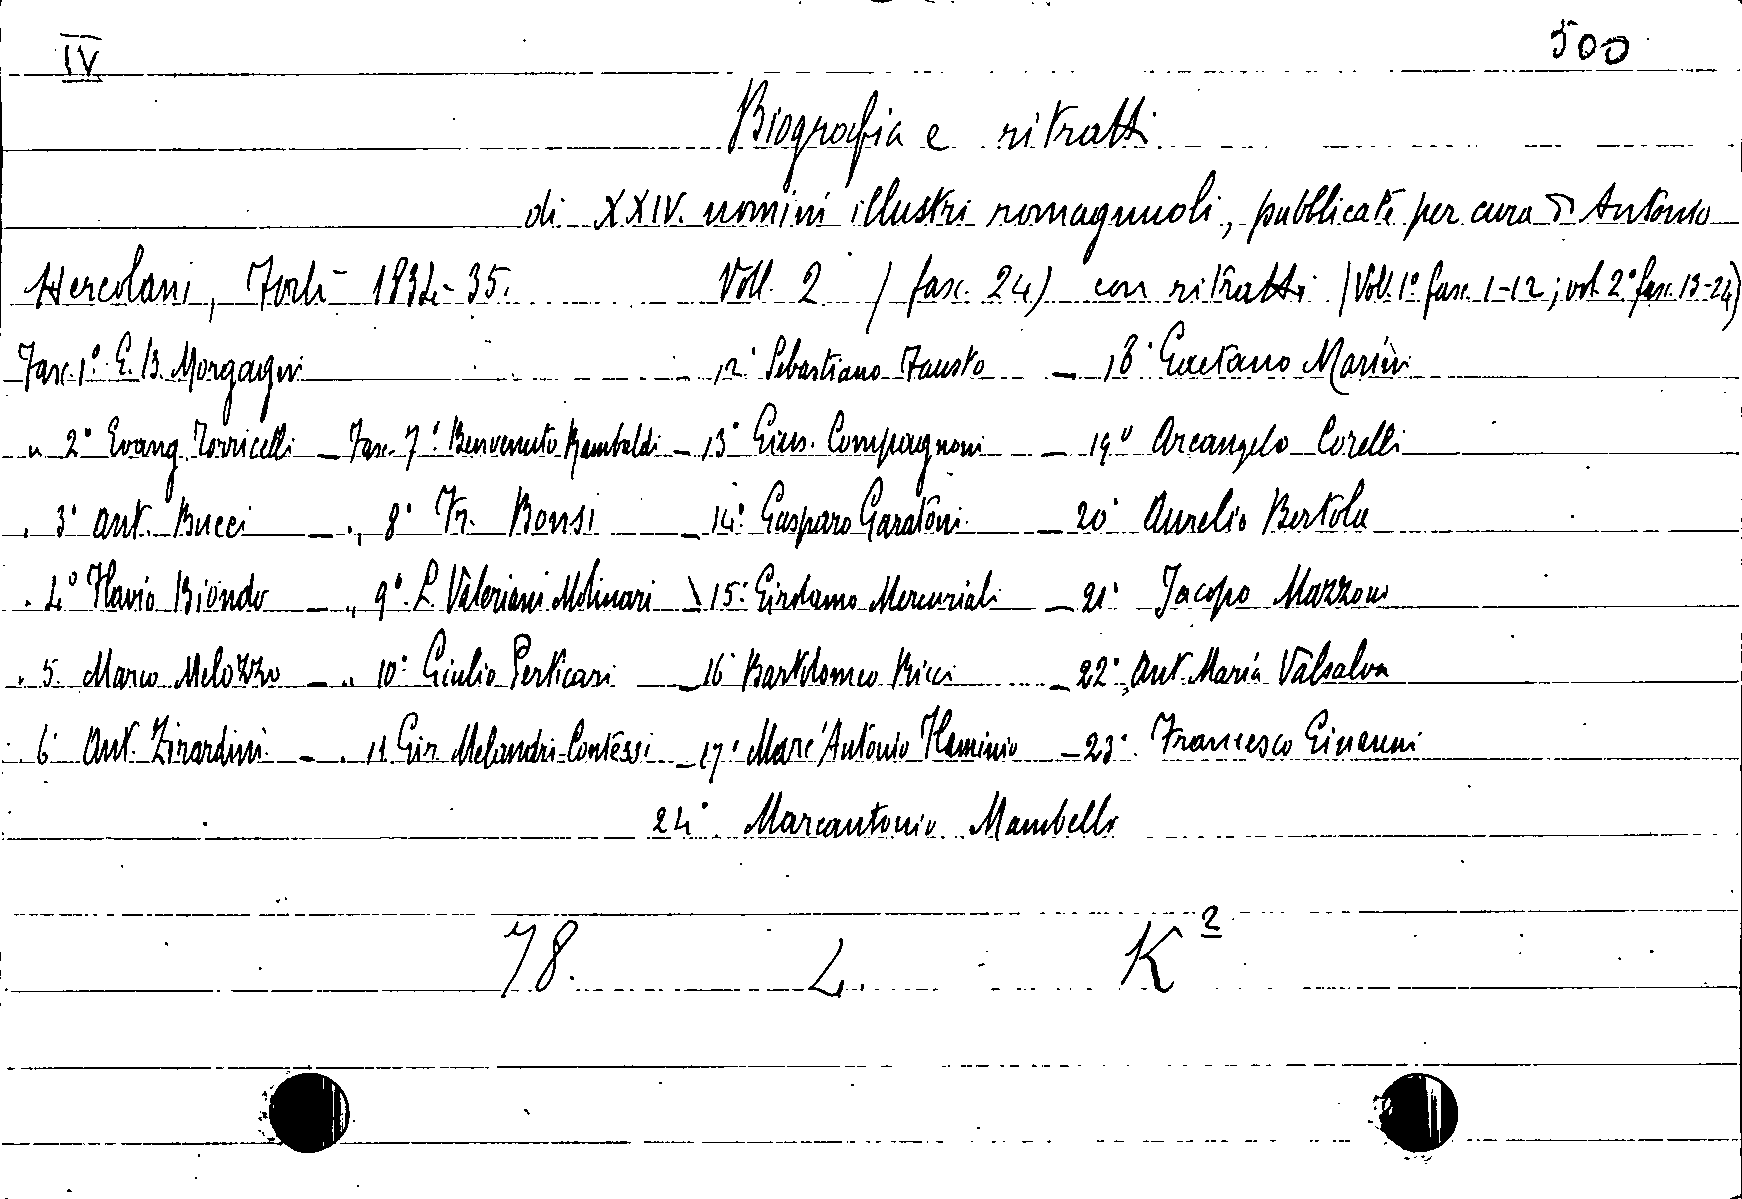 IV 500
Biografia e ritratti
di XXIV. uomini illustri romagnuoli, pubblicate per cura di Antonio
Hercolani, Forlì 1834-35. Voll. 2 (fasc. 24) con ritratti (Vol. 1° fasc. 1-12; vol. 2° fasc. 13-24)
Fasc. 1° G. B. Morgagni 12° Sebastiano Fausto - 18° Gaetano Marini
" 2° Evang. Torricelli - Fasc. 7° Benvenuto Rambaldi - 13° Gius. Compagnoni - 19° Arcangelo Corelli
" 3° Ant. Bucci - " 8° Fr. Bonsi - 14° Gasparo Garatoni - 20° Aurelio Bertola
" 4° Flavio Biondo - " 9° L. Valeriani Molinari - 15° Girolamo Mercuriali - 21° Jacopo Mazzoni
" 5. Marco Melozzo - " 10° Giulio Perticari - 16° Bartolomeo Ricci - 22° Ant. Maria Valsalva
" 6° Ant. Zirardini - " 11 Gir. Melandri-Contessi - 17° Marc'Antonio Flaminio - 23° Francesco Ginanni
24° Marcantonio Mambelli
78. L. K2